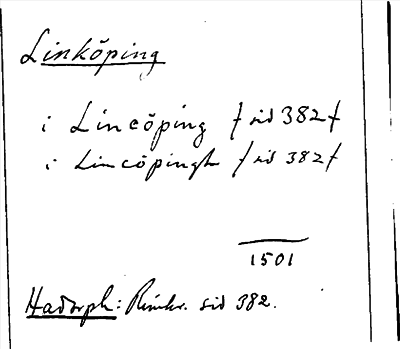 Linköping
i Lincöping /sid 382/
i Lincöpingh /sid 382/
1501
Hadorph: Rimkr. sid 382.